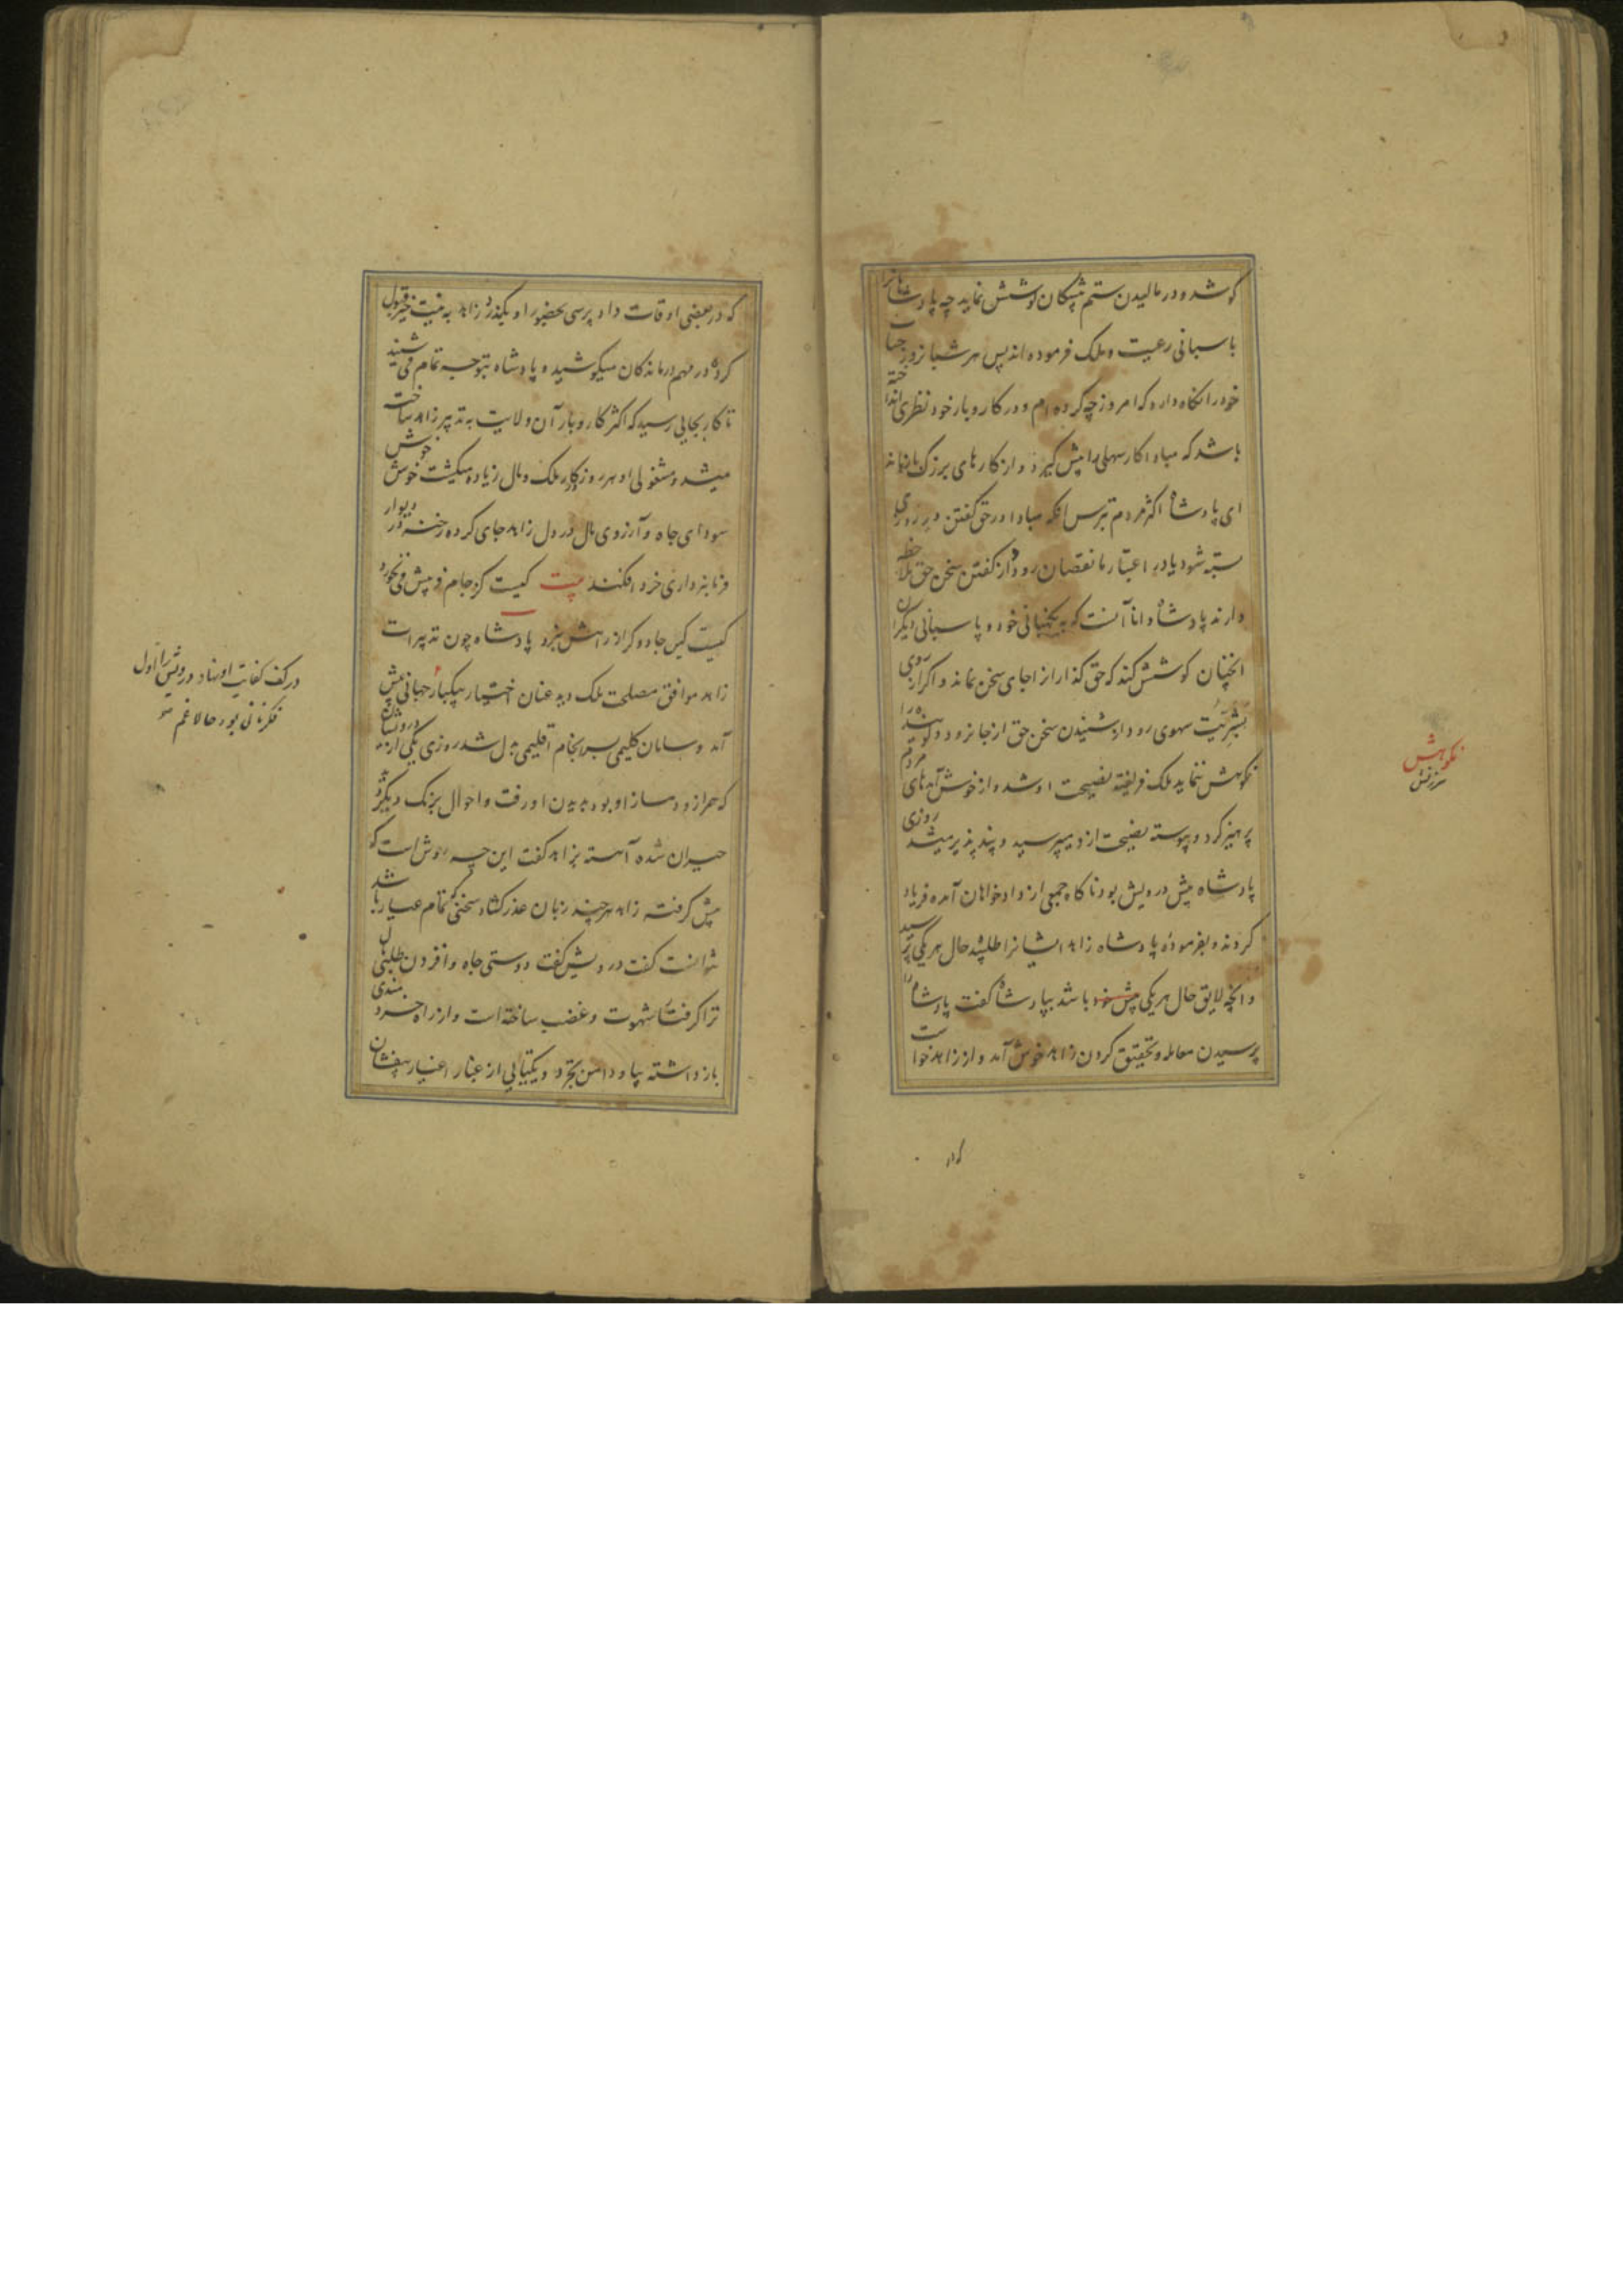 کوشد و در مالیدن ستم پیشکان کوشش نماید چه پادشاهانرا
پاسبانی رعیت و ملک فرموده اند پس هر شبانروز حساب
خود را نکاه دارد که امروز چه کرده ام و در کاروبار خود نظری انداخته
باشد که مبادا کار سهلی را پیش کیرد و از کارهای بزرک بازماند
ای پادشاه اکثر مردم بترس انکه مبادا در حق کفتن در روزی
بسته شود یا در اعتبار ما نقصان رود از کفتن سخن حق ملاحظه
دارند پادشاه دانا آنست که به نکهبانی خود و پاسبانی دیکران
انچنان کوشش کند که حق کذار انرا جای سخن نماند و اکر از روی
بشریت سهوی رو داد بشنیدن سخن حق از جا نرود و کوینده را
نکوهش ننماید ملک فریفته نصیحت او شد و از خوش آمدهای مردم
پرهیز کرد و پیوسته نصیحت از و میپرسید و پند پذیر میشد روزی
پادشاه پیش درویش بود ناکاه جمعی از دادخواهان آمده فریاد
کردند و بفرموده پادشاه زاهد ایشانرا طلبیده حال هر یکی پرسید
و انچه لایق حال هر یکی پیش خود باشد بپادشاه کفت پادشاه را
پرسیدن معامله و تحقیق کردن زاهد خوش آمد و از زاهد خواست
نکوهش
سرزنش
که در
که در بعضی اوقات داد پرسی بحضور او بکذرد زاهد به نیت خیر قبول
کرده در مهم درماندکان میکوشید و پادشاه بتوجه تمام می شنید
تا کار بجایی رسید که اکثر کاروبار آن ولایت به تدبیر زاهد ساخته
میشد و مشغولی او هر روز بکار ملک و مال زیاده میکشت خوش خوش
سودای جاه و آرزوی مال در دل زاهد جای کرده رخنه در دیوار
فرمانبرداری خرد افکند بیت کیست کز جام فریبش می نخورد
کیست کین جادوکر از راهش نبرد پادشاه چون تدبیرات
زاهد موافق مصلحت ملک دید عنان اختیار بیکبار جهانی پیش
آمد و سامان کلیمی بسرانجام اقلیمی بدل شد روزی یکی از درویشان
که همراز و دمساز او بود بدیدن او رفت و احوال بزنک دیکر دید
حیران شده آهسته بزاهد کفت این چه روش است که
پیش کرفته زاهد هر چند زبان عذر کشاد سخنی که تمام عیار باشد
نتوانست کفت درویش کفت دوستی جاه و افزودن طلبی مال
ترا کرفتار شهوت و غضب ساخته است و از راه خردمندی
بازداشته بیا و دامن تجرد و یکتایی از غبار اغیار بیفشان
در کف کفایت او نهاد درویش را اول
فکر نانی بود حالا غم